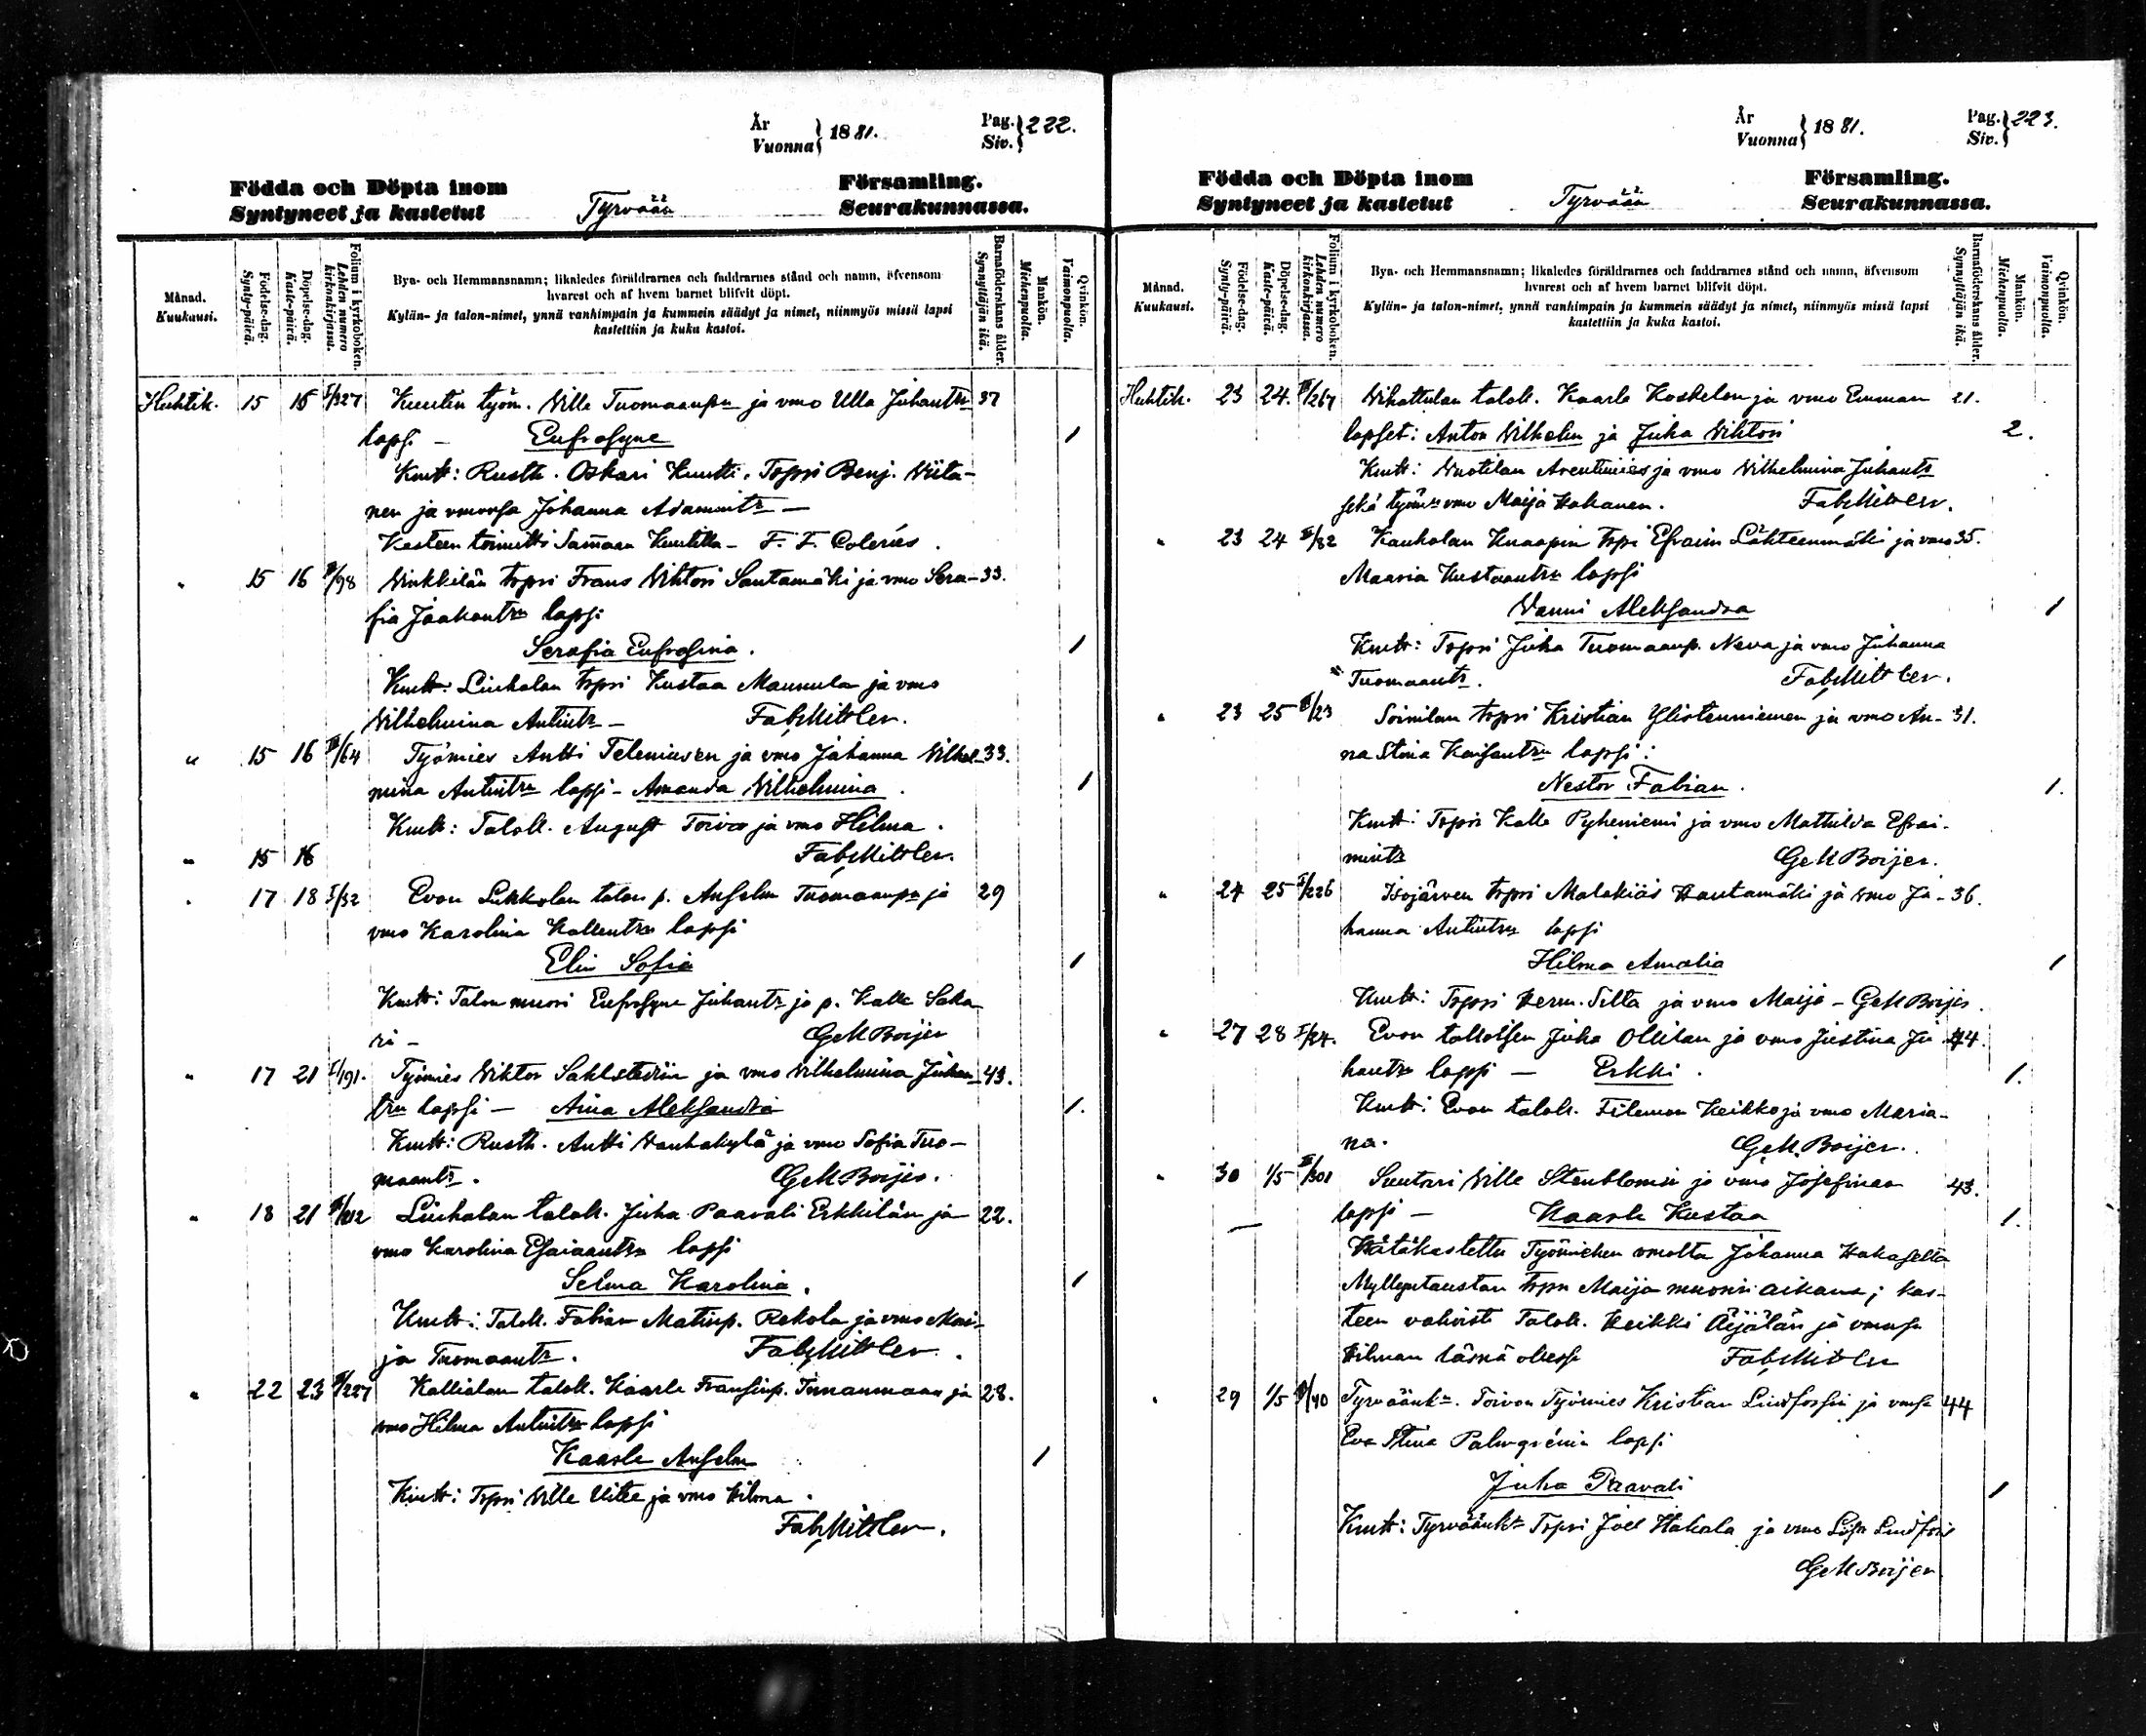 År
Vuonna } 1881.
Pag.
Siv. } 222.
Födda och Döpta inom Församling.
Syntyneet ja kastetut Tyrvään Seurakunnassa.
Månad.
Kuukausi.
Födelse-dag.
Synty-päivä.
Döpelse-dag.
Kaste-päivä.
Folium i kyrkoboken.
Lehden numero kirkonkirjassa.
Bya- och Hemmansnamn; likaledes föräldrarnes och faddrarnes stånd och namn, äfvensom
hvarest och af hvem barnet blifvit döpt.
Kylän- ja talon-nimet, ynnä vanhimpain ja kummein säädyt ja nimet, niinmyös missä lapsi
kastettiin ja kuka kastoi.
Barnaföderskans ålder.
Synnyttäjän ikä.
Mankön.
Miehenpuolta.
Qvinkön.
Vaimonpuolta.
Huhtik. 15 16 I/327 Kuutin työm. Wille Tuomaanpn ja vmo Ulla Juhantr 37
lapsi – Eufrosyne 1
Kmtt: Rusth. Oskari Kuutti, Torpri Benj. Wiita-
nen ja vmonsa Johanna Adamintr –
Kasteen toimitti Samaan Kuutilla – F. F. Colerús.
" 15 16 /98 Winkkilän torpri Frans Wihtori Santamäki ja vmo Sera- 33.
fia Jaakontrn lapsi
Serafia Eufrosina. 1
Kmtt: Liuhalan torpri Kustaa Mannula ja vmo
Wilhelmina Antintr – Fab. Mittler.
" 15 16 /64 Työmies Antti Teleniusen ja vmo Johanna Wilhel- 33.
mina Antintrn lapsi – Amanda Wilhelmina. 1
Kmtt: Taloll. August Toivo ja vmo Hilma.
" 15 16 Fab. Mittler.
" 17 18 I/32 Evon Liukkolan talon p. Anselm Tuomaanpn ja 29
vmo Karolina Kallentrn lapsi
Elin Sofia 1
Kmtt: Talon muori Eufrosyne Juhantr ja p. Kalle Saka-
ri – G M Boijer
" 17 21 I/191. Työmies Wiktor Sahlstedtin ja vmo Wilhelmina Juhan- 43.
trn lapsi – Aina Aleksandra 1.
Kmtt: Rusth. Antti Wanhakylä ja vmo Sofia Tuo-
maantr. G M Boijer.
" 18 21 Liuhalan taloll. Juha Paavali Erkkilän ja 22.
vmo Karolina Esaiaantrn lapsi
Selma Karolina. 1
Kmtt: Taloll. Fabian Matinp. Rekola ja vmo Mai-
ja Tuomaantr. Fab. Mittler.
" 22 23 /227 Kallialan taloll. Kaarle Fransinp. Innanmaan ja 28.
vmo Hilma Antintrn lapsi
Kaarle Anselm 1
Kmtt: Torpri Wille Uitto ja vmo Hilma.
Fab. Mittler.
År
Vuonna } 1881.
Pag.
Siv. } 223.
Födda och Döpta inom Församling.
Syntyneet ja kastetut Tyrvään Seurakunnassa.
Månad.
Kuukausi.
Födelse-dag.
Synty-päivä.
Döpelse-dag.
Kaste-päivä.
Folium i kyrkoboken.
Lehden numero kirkonkirjassa.
Bya- och Hemmansnamn; likaledes föräldrarnes och faddrarnes stånd och namn, äfvensom
hvarest och af hvem barnet blifvit döpt.
Kylän- ja talon-nimet, ynnä vanhimpain ja kummein säädyt ja nimet, niinmyös missä lapsi
kastettiin ja kuka kastoi.
Barnaföderskans ålder.
Synnyttäjän ikä.
Mankön.
Miehenpuolta.
Qvinkön.
Vaimonpuolta.
Huhtik. 23 24. /267 Wihattulan taloll. Kaarle Koskelan ja vmo Emman 21.
lapset: Anton Wilhelm ja Juha Wihtori 2.
Kmtt: ja vmo Wilhelmina Juhantr
sekä työmn vmo Maija Hakanen. Fab. Mittler.
" 23 24 /82 Kaukolan Knaapin torpr Efraim Lähteenmäki ja vmo 35.
Maaria Kustaantrn lapsi
Wanni Aleksandra 1
Kmtt: Torpri Juha Tuomaanp. Neva ja vmo Johanna
Tuomaantr. Fab. Mittler.
" 23 25 /23 Soinilan torpri Kristian Ylistenniemen ja vmo An- 31.
na Stina lapsi:
Nestor Fabian. 1.
Kmtt: Torpri Kalle Pyheniemi ja vmo Mattilda Efrai-
mintr G M Boijer.
" 24 25 /226 Isojärven torpri Malakias Hautamäki ja vmo Jo- 36.
hanna Antintrn lapsi
Hilma Amalia 1
Kmtt: Torpri Herm. Silta ja vmo Maija – G M Boijer.
" 27 28 I/24. Evon tallollisen Juha Ollilan ja vmo Justina Ju- 44.
hantrn lapsi – Erkki. 1.
Kmtt: Evon taloll. Filemon Heikko ja vmo Maria-
na. G M Boijer.
" 30 1/5 /301 Suutari Wille Stenblomin ja vmo Josefinan 43.
lapsi – Kaarle Kustaa 1.
Hätäkastettu Työmiehen vmolta Johanna Hakaselta
Myllyntaustan torpn Maija muorin aikana; kas-
teen vahvisti Taloll. Heikki Äijälän ja vmonsa
Hilman läsnä ollessa Fab. Mittler
" 29 1/5 /40 Tyrväänk. Toivon Työmies Kristian Lindforsin ja vmsa 44
Eva Stina Palmgrénin lapsi
Juha Paavali 1
Kmtt: Tyrväänkn Torpri Joel Hakala ja vmo Lisa Lindfors
G M Boijer